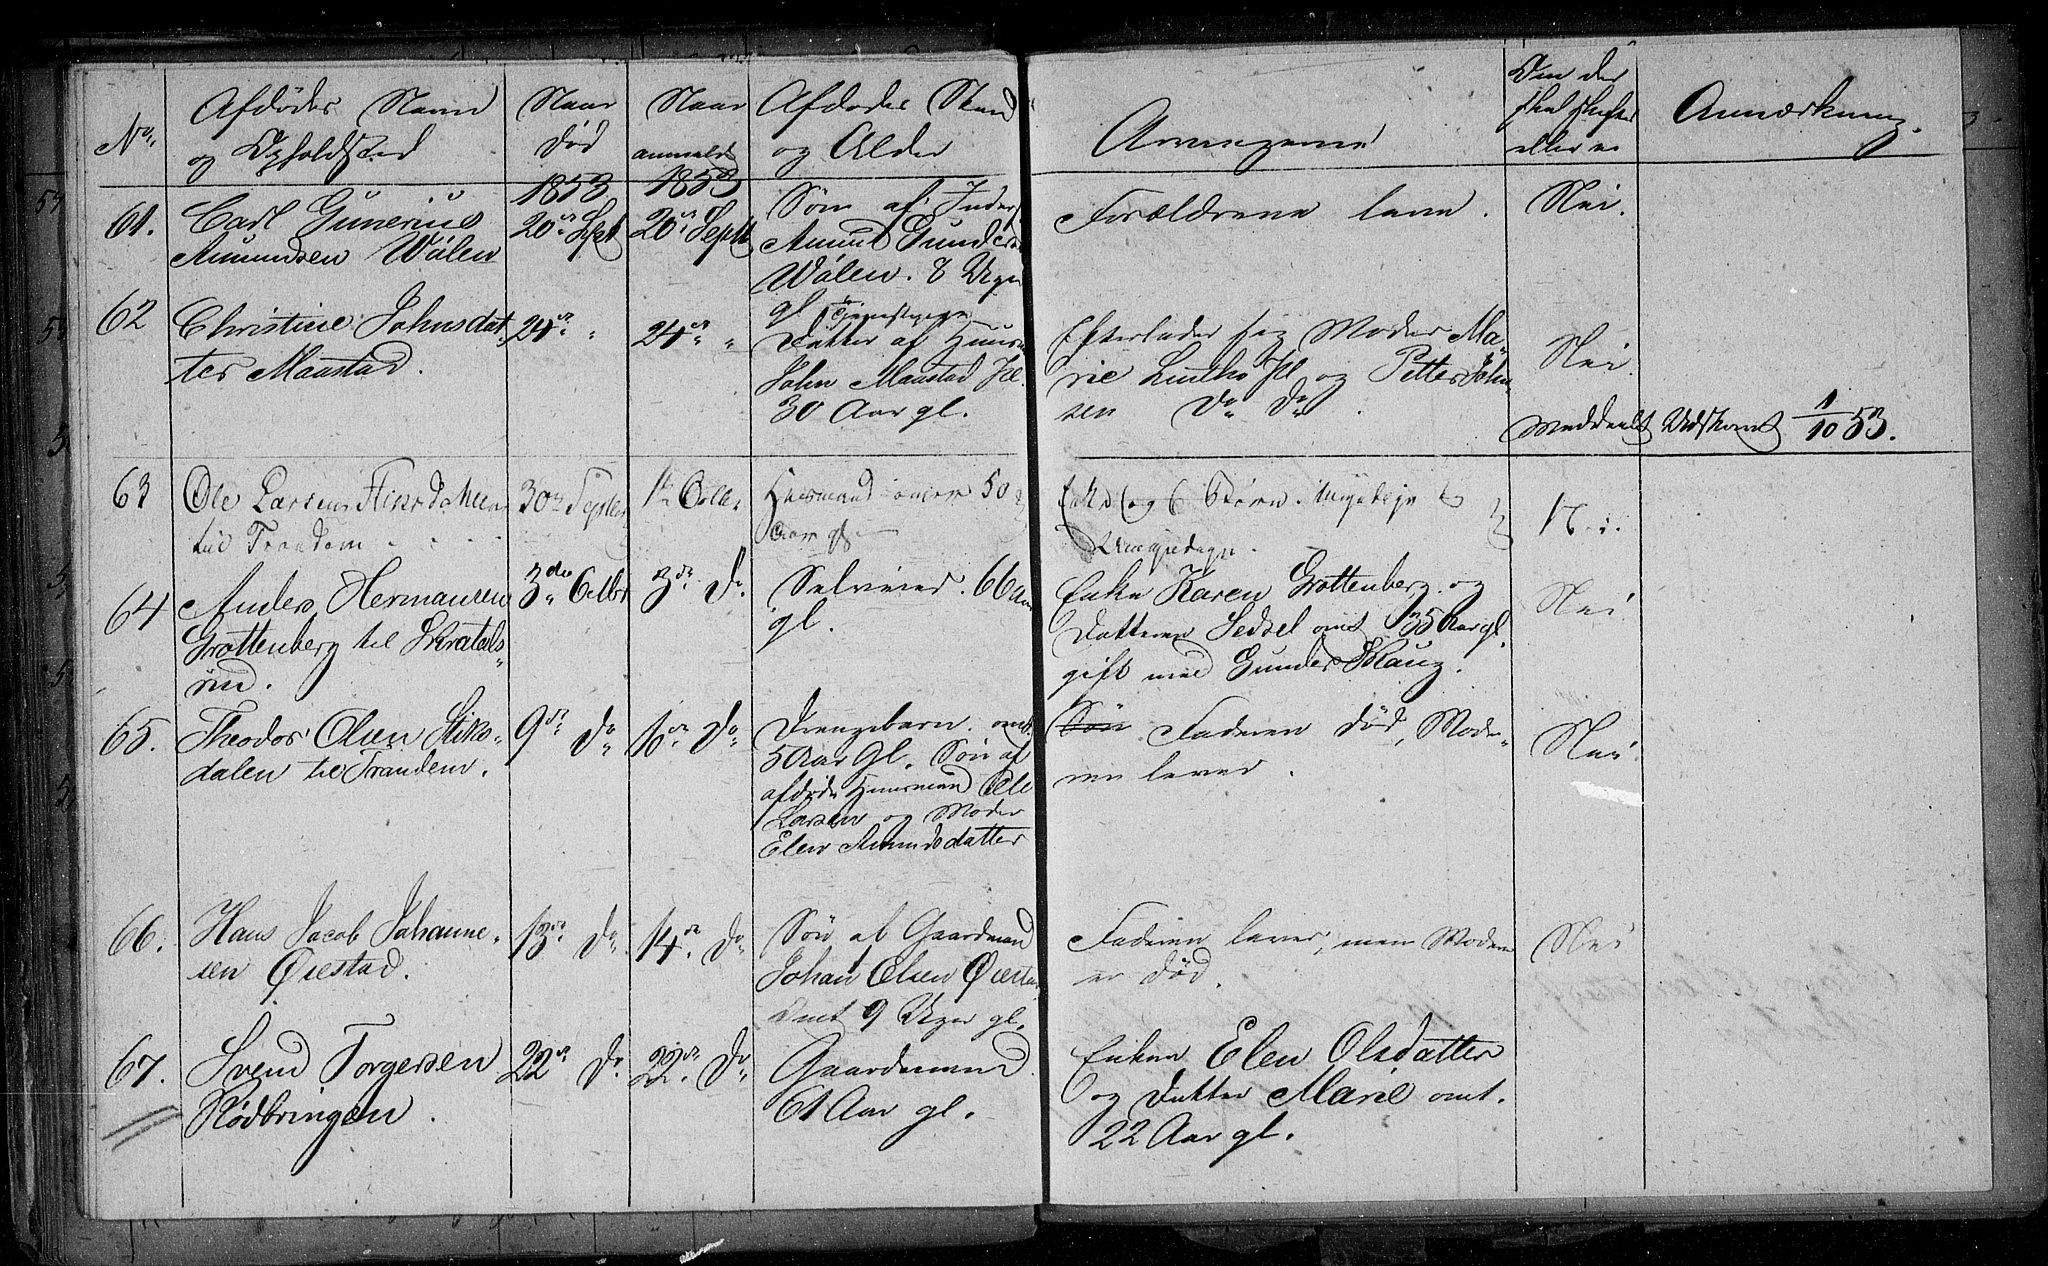 No.
Afdødes Navn
og Opholdsted
Naar
død
1853
Naar
anmeldt
1853
Afdødes Stand
og Alder
Arvingerne
Om der
skal skiftes
eller ei
Anmærkning.
61.
Carl Gunerius
Amundsen Wølen
20de Sept
20de Septb
Søn af Inders
Amut Gunders
Wølen. 8 Uger
gl
Forældrene leve.
Nei.
62
Christine Johnsdat
ter Maastad.
24de "
24de "
Tjenestepige
Datter af Huusm
John Maastad Jel
30 Aar gl.
Efterlader sig Moder Ma
rie Lintho Jel og Petter John
sen Do Do.
Nei.
Meddeelt Udskrevet 1/10 53.
63
Ole Larsen Stiksdahlen
til Trandem
30te Septber
1te Octbr
Huusmand omtr 50
Aar gl
Enke og 6 Børn. Umyndige
Umyndige.
Nei.
64
Anders Hermansen
Grøttenberg til Skratals
rud.
3die Octbr
3de Do
Selveier. 66 Aar
gl.
Enke Karen Grøttenberg og
Datteren Sedsel omt 35 Aar gl.
gift med Gunder Skaug.
Nei
65.
Theodor Olsen Stiks
dalen til Trandem.
9de Do
10de Do
Drengebarn omt
5 Aar Gl. Søn af
afdøde Huusmand Ole
Larsen og Moder
Elen Amundsdatter
Søn Faderen død, Mode
ren lever.
Nei
66.
Hans Jacob Johanne
sen Øiestad.
13de Do
14de Do
Søn af Gaardmand
Johan Olsen Øiestad
omt 9 Uger gl.
Faderen lever, men Moderen
er død.
Nei
67.
Svend Torgersen
Rødbringen.
22de Do
22de Do
Gaardmand.
61 Aar gl.
Enken Elen Olsdatter
og Datter Marie omt.
22 Aar gl.